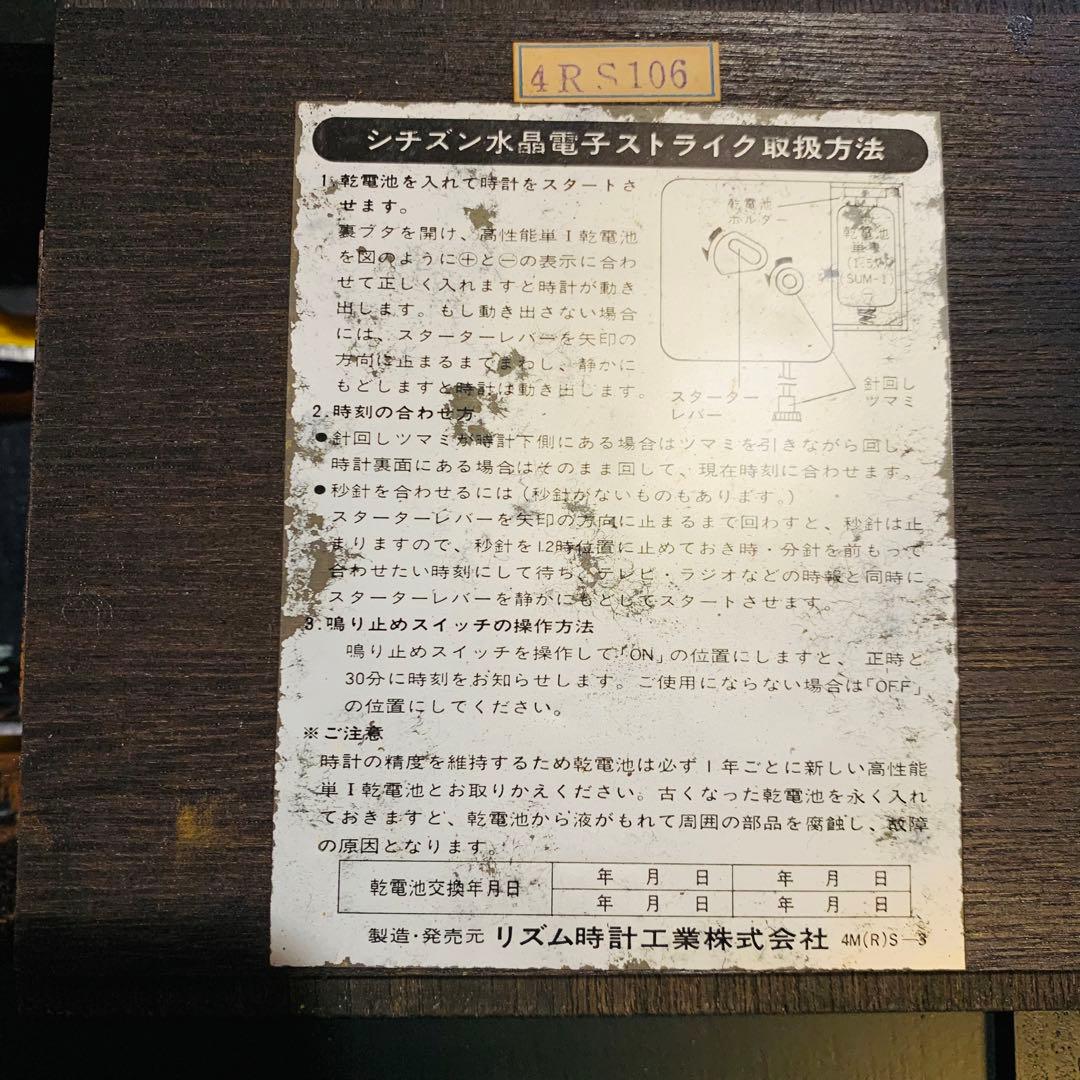 4RS106
シチズン水晶電子ストライク取扱方法
1. 乾電池を入れて時計をスタートさ
せます。
裏ブタを開け、高性能単Ⅰ乾電池
を図のように⊕と⊖の表示に合わ
せて正しく入れますと時計が動き
出します。もし動き出さない場合
には、スターターレバーを矢印の
方向に止まるまでまわし、静かに
もどしますと時計は動き出します。
乾電池
ホルダー
乾電池
(SUM-1)
スターター
レバー
針回し
ツマミ
2. 時刻の合わせ方
●針回しツマミが時計下側にある場合はツマミを引きながら回し、
時計裏面にある場合はそのまま回して、現在時刻に合わせます。
●秒針を合わせるには(秒針がないものもあります。)
スターターレバーを矢印の方向に止まるまで回わすと、秒針は止
まりますので、秒針を12時位置に止めておき時・分針を前もって
合わせたい時刻にして待ち、テレビ・ラジオなどの時報と同時に
スターターレバーを静かにもどしてスタートさせます。
3. 鳴り止めスイッチの操作方法
鳴り止めスイッチを操作して「ON」の位置にしますと、正時と
30分に時刻をお知らせします。ご使用にならない場合は「OFF」
の位置にしてください。
※ご注意
時計の精度を維持するため乾電池は必ず1年ごとに新しい高性能
単Ⅰ乾電池とお取りかえください。古くなった乾電池を永く入れ
ておきますと、乾電池から液がもれて周囲の部品を腐蝕し、故障
の原因となります。
乾電池交換年月日
年 月 日 年 月 日
年 月 日 年 月 日
製造・発売元 リズム時計工業株式会社 4M(R)S-3